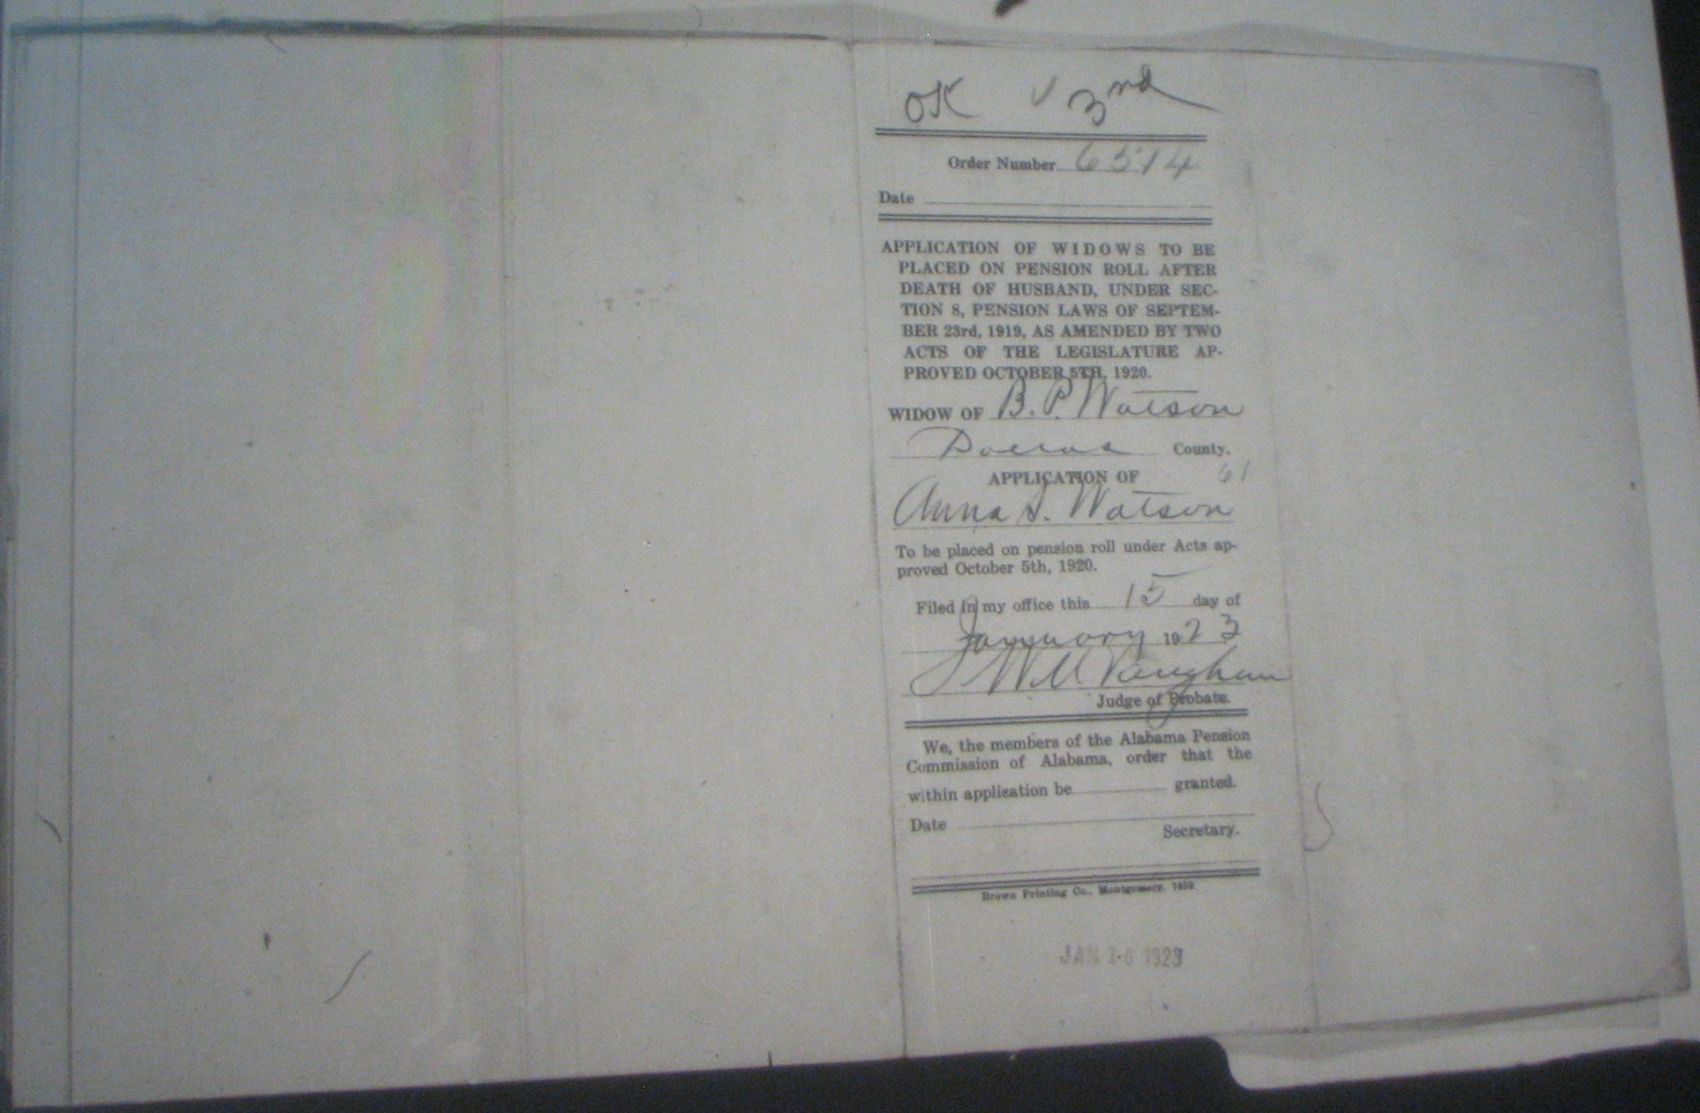 OK ✓ 3rd
Order Number 6514
Date
APPLICATION OF WIDOWS TO BE
PLACED ON PENSION ROLL AFTER
DEATH OF HUSBAND, UNDER SEC-
TION 8, PENSION LAWS OF SEPTEM-
BER 23rd, 1919, AS AMENDED BY TWO
ACTS OF THE LEGISLATURE AP-
PROVED OCTOBER 5TH, 1920.
WIDOW OF B. P. Watson
Dallas County.
APPLICATION OF 61
Anna S. Watson
To be placed on pension roll under Acts ap-
proved October 5th, 1920.
Filed in my office this 15 day of
January 1923
Vaughan
Judge of Probate.
We, the members of the Alabama Pension
Commission of Alabama, order that the
within application be granted.
Date
Secretary.
Brown Printing Co., Montgomery.
JAN 16 1923